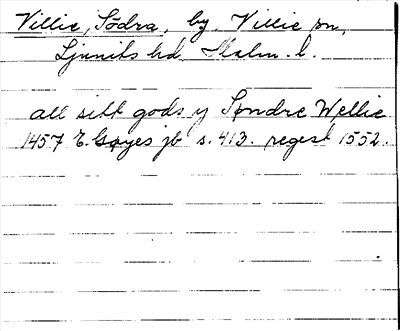 Villie, Södra, by. Villie sn,
Ljunits hd. Malm. l.
all sitt gods y Søndre Wellie
1457 E. Gøyes jb s. 413. regest 1552.